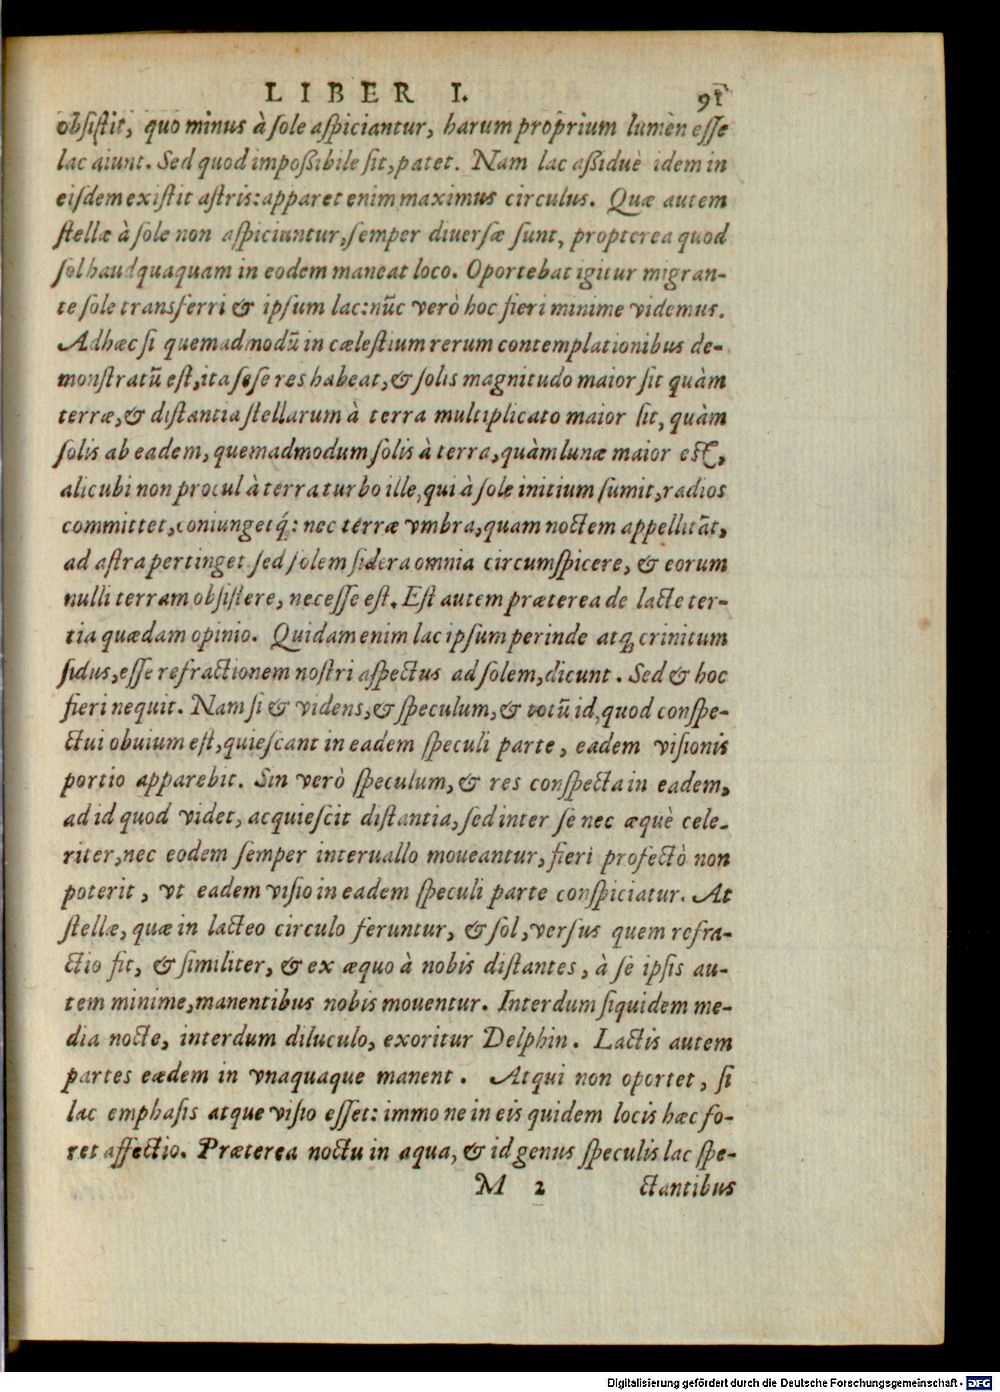 LIBER I. 91
obsistit, quo minus à sole aspiciantur, harum proprium lumèn esse
lac aiunt. Sed quod impoßibile sit, patet. Nam lac aßiduè idem in
eisdem existit astris: apparet enim maximus circulus. Quæ autem
stellæ à sole non aspiciuntur, semper diuersæ sunt, propterea quod
sol haudquaquam in eodem maneat loco. Oportebat igitur migran-
te sole transferri & ipsum lac: nūc verò hoc fieri minime videmus.
Adhæc si quemadmodū in cælestium rerum contemplationibus de-
monstratū est, ita sese res habeat, & solis magnitudo maior sit quàm
terræ, & distantia stellarum à terra multiplicato maior sit, quàm
solis ab eadem, quemadmodum solis à terra, quàm lunæ maior est,
alicubi non procul à terra turbo ille, qui à sole initium sumit, radios
committet, coniungetq́: nec terræ vmbra, quam noctem appellitāt,
ad astra pertinget sed solem sidera omnia circumspicere, & eorum
nulli terram obsistere, necesse est. Est autem præterea de lacte ter-
tia quædam opinio. Quidam enim lac ipsum perinde atq; crinitum
sidus, esse refractionem nostri aspectus ad solem, dicunt. Sed & hoc
fieri nequit. Nam si & videns, & speculum, & totū id, quod conspe-
ctui obuium est, quiescant in eadem speculi parte, eadem visionis
portio apparebit. Sin verò speculum, & res conspecta in eadem,
ad id quod videt, acquiescit distantia, sed inter se nec æquè cele-
riter, nec eodem semper interuallo moueantur, fieri profectò non
poterit, vt eadem visio in eadem speculi parte conspiciatur. At
stellæ, quæ in lacteo circulo feruntur, & sol, versus quem refra-
ctio fit, & similiter, & ex æquo à nobis distantes, à se ipsis au-
tem minime, manentibus nobis mouentur. Interdum siquidem me-
dia nocte, interdum diluculo, exoritur Delphin. Lactis autem
partes eædem in vnaquaque manent. Atqui non oportet, si
lac emphasis atque visio esset: immo ne in eis quidem locis hæc fo-
ret affectio. Præterea noctu in aqua, & id genus speculis lac spe-
M 2 ctantibus
Digitalisierung gefördert durch die Deutsche Forschungsgemeinschaft - DFG